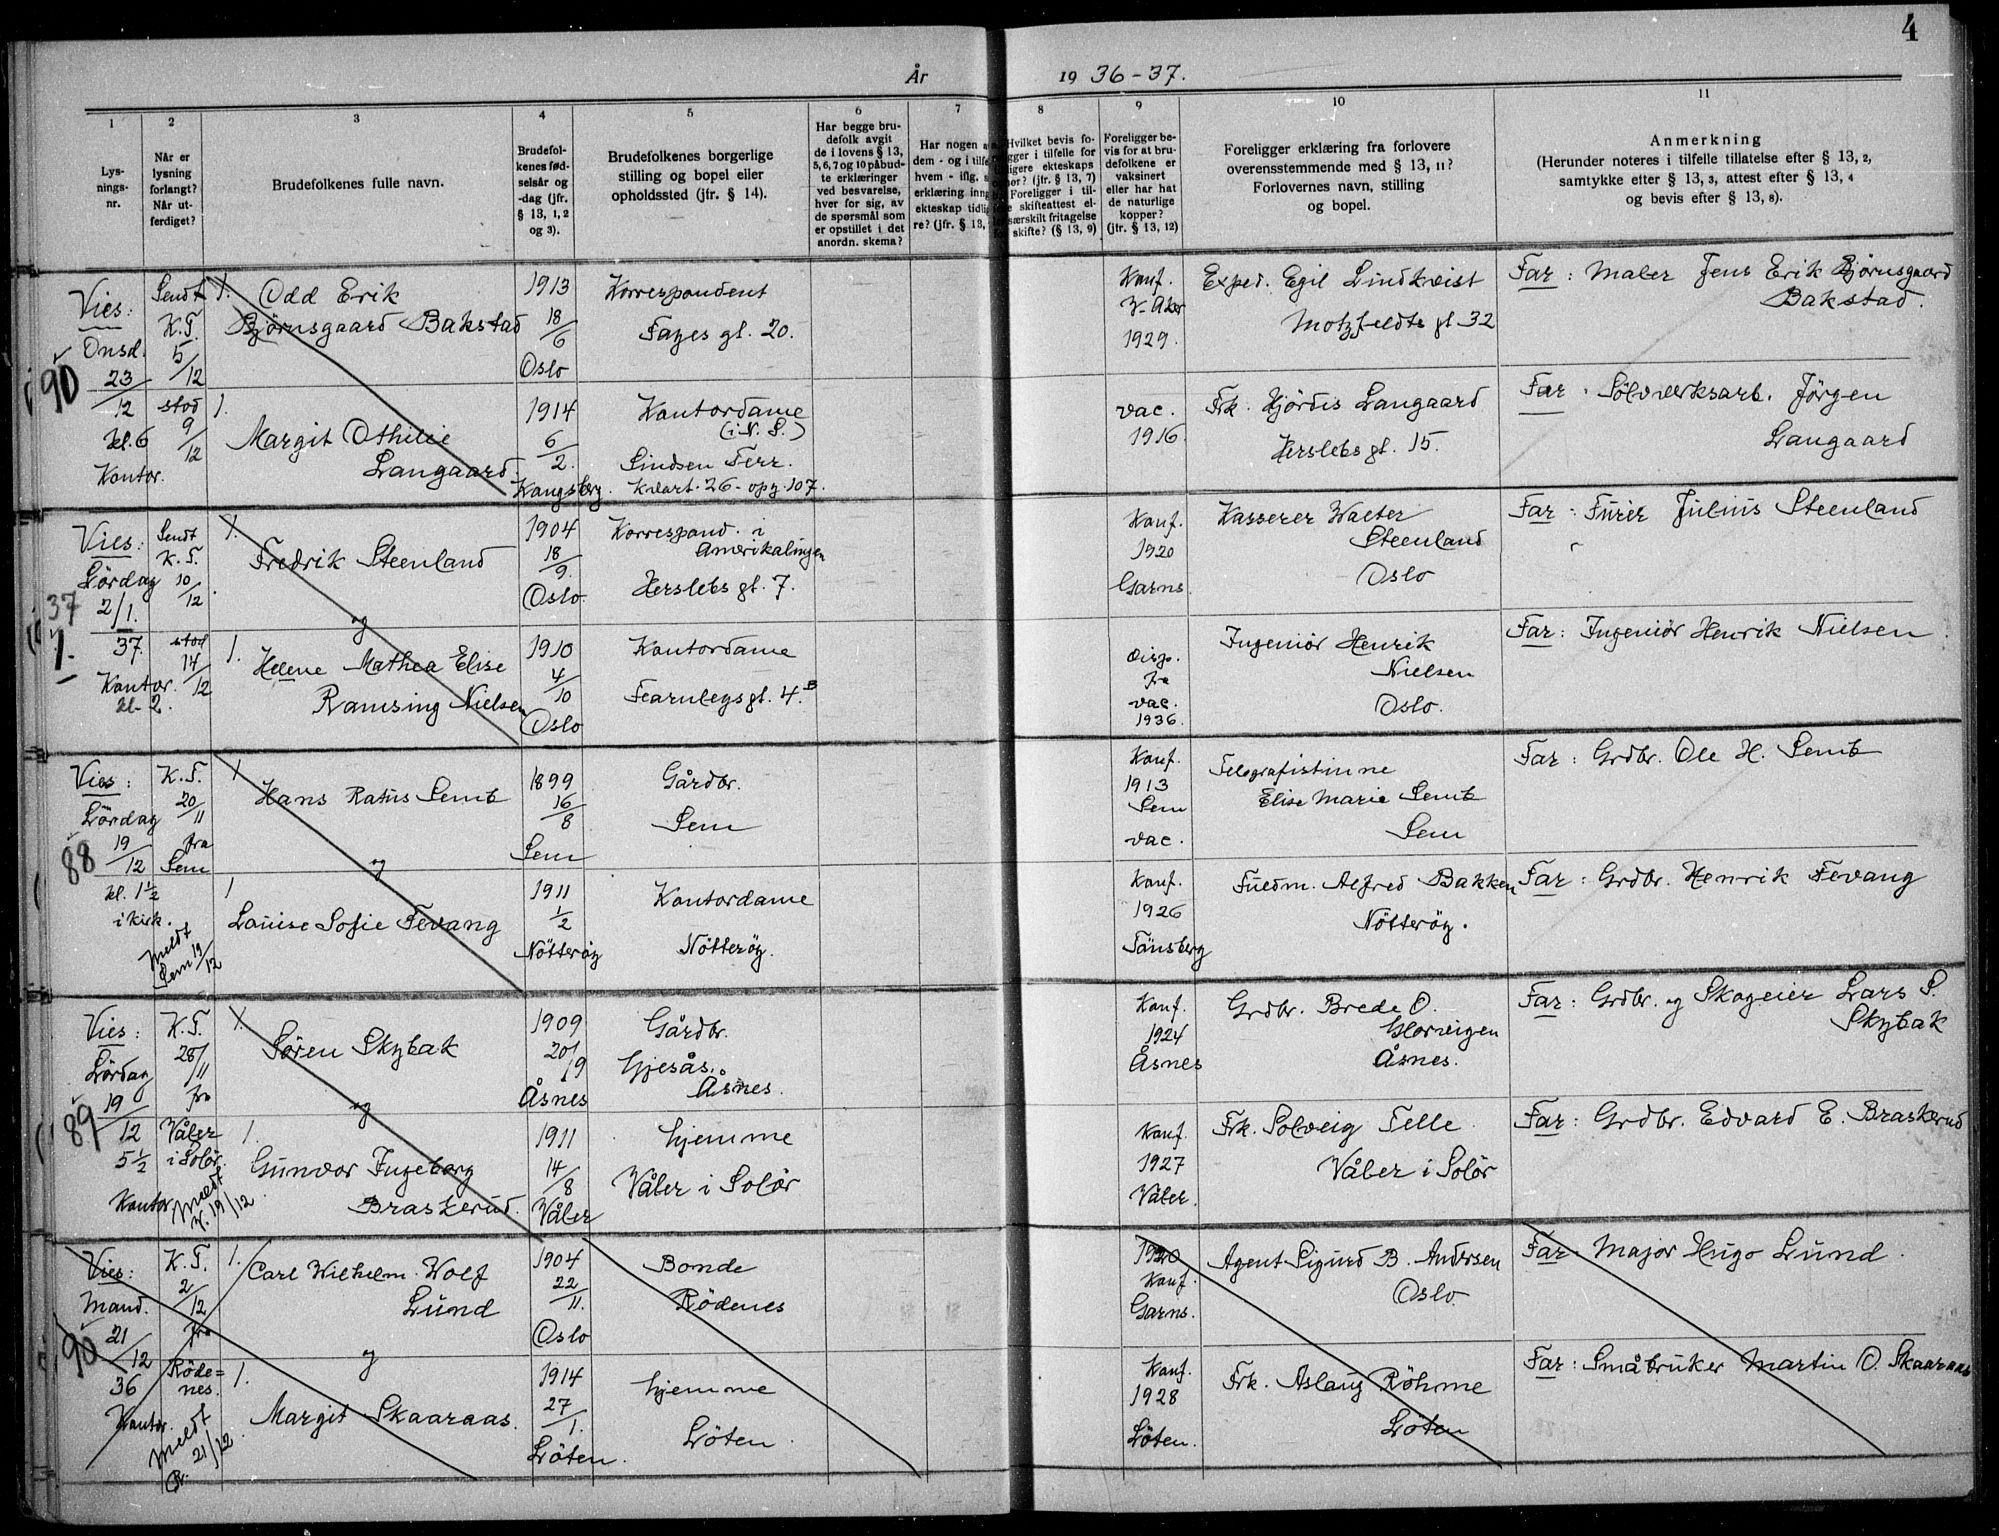 4
År 1936-37.
1
Lysningsnr.
2
Når er lysning forlangt? Når utferdiget?
3
Brudefolkenes fulle navn.
4
Brudefolkenes fødselsår og -dag (jfr. § 13, 1, 2 og 3).
5
Brudefolkenes borgerlige stilling og bopel eller opholdssted (jfr. § 14).
6
Har begge brudefolk avgit de i lovens § 13, 5, 6, 7 og 10 påbudte erklæringer ved besvarelse, hver for sig, av de spørsmål som er opstillet i det anordn. skema?
7
Har nogen a
dem - og i tilfe
hvem - iflg. s
erklæring inng
ekteskap tidlig
re? (jfr. § 13,
8
Hvilket bevis fo-
gger i tilfelle for
ligere ekteskaps
hør? (jfr. § 13, 7)
Foreligger i til-
e skifteattest el-
særskilt fritagelse
skifte? (§ 13, 9)
9
Foreligger bevis for at brudefolkene er vaksinert eller har hat de naturlige kopper? (jfr. § 13, 12)
10
Foreligger erklæring fra forlovere overensstemmende med § 13, 11? Forlovernes navn, stilling og bopel.
11
Anmerkning
(Herunder noteres i tilfelle tillatelse efter § 13, 2, samtykke efter § 13, 3, attest efter § 13, 4 og bevis efter § 13, 8).
90
Vies:
Onsd.
23/12
kl. 6
Kontor.
Sendt
K.T.
5/12
stod
9/12
1. Odd Erik
Bjørnsgaard Bakstad
1913
18/6
Oslo
Korrespondent
Fayes gt. 20.
Konf.
V-Aker
1929.
Exped. Egil Lindkvist
Motzfeldts gt. 32
Far: Maler Jens Erik Bjørnsgaard
Bakstad.
1.
Margit Othilie
Langaard.
1914
6/2.
Kongsberg.
Kontordame
(i N. S.)
Sindsen Terr.
Kvart. 26 - opg. 107.
vac.
1916.
Frk. Hjørdis Langaard
Herslebs gt. 15.
Far. Sølvverksarb. Jörgen
Langaard
37
1.
Vies:
Lördag
2/1.
37.
Kontor.
kl. 2.
Sendt
K.T.
10/12
stod
14/12
1.
Fredrik Steenland
og
1904
18/9.
Oslo.
Korrespond. i
Amerikalinjen
Herslebs gt. 7.
Konf.
1920
Garns.
Kasserer Walter
Steenland
Oslo
Far: Furer Julius Steenland
1. Helene Mathea Elise
Ramsing Nielsen
1910
4/10
Oslo
Kontordame
Fearnleys gt. 4.B
Disp.
fra
vac.
1936.
Ingeniör Henrik
Nielsen
Oslo.
Far: Ingeniör Henrik Nielsen
88
Vies:
Lördag
19/12
kl. 1 1/2
i kirk.
K.T.
20/11
fra
Sem
Meldt
Sem 19/12
1
Hans Ratus Semb
og
1899
16/8
Sem
Gårdbr.
Sem
Konf.
1913
Sem
vac.
Telegrafistinne
Elise Marie Semb
Sem
Far: Grdbr. Ole H. Semb
1
Louise Sofie Fevang
1911
1/2
Nötteröy
Kontordame
Nötteröy.
Konf.
1926
Tönsberg
Fuldm. Alfred Bakken
Nötteröy.
Far: Grdbr. Henrik Fevang
89
Vies:
Lördag
19/12
5 1/2
Kontor
K.T.
28/11
fra
Våler
i Solör.
Meldt
V. 19/12
1
Søren Skybak
og
1909
20/9
Åsnes
Gårdbr.
Gjesås,
Åsnes.
Konf.
1924
Åsnes
Grdbr. Brede O.
Glorvigen
Åsnes.
Far: Grdbr. og Skogeier Lars S.
Skybak
1.
Gunvor Ingeborg
Braskerud.
1911
14/8
Våler
hjemme
Våler i Solör
Konf.
1927
Våler.
Frk. Solveig Telle
Våler i Solör
Far: Grdbr. Edvard E. Braskerud
90
Vies:
Mand.
21/12
36
Kontor.
K.T.
2/12
fra
Röde=
nes.
Meldt
R. 21/12
1. Carl Wilhelm Wolf
Lund
og
1904
22/11.
Oslo
Bonde
Rödenes
1920
Konf.
Garns.
Agent Sigurd B. Andersen
Oslo.
Far: Major Hugo Lund.
1.
Margit Skaaraas.
1914
27/1.
Löten.
hjemme
Löten.
Konf.
1928
Löten.
Frk. Aslaug Röhme
Löten
Far: Småbruker Martin O. Skaaraas